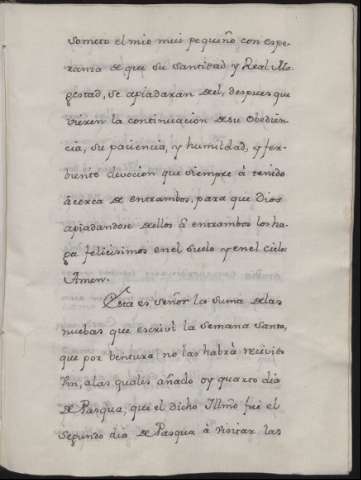 someto el mio mui pequeño con espe-
ranza de que su Santidad y Real Ma-
gestad, se apiadaran del, despues que
vieren la continuacion de su Obedien-
cia, su paciencia, y humildad, y fer-
biente devocion que siempre á tenido
àcerca de entrambos, para que Dios
apiadandose dellos â entrambos los ha-
ga felicisimos en el suelo y en el cielo
Amen.
Esta es señor la suma de las
nuebas que escriví la Semana Santa,
que por ventura no las habrà recivido
Vm, a las quales añado oy quarto dia
de Pasqua, que el dicho Illmo fué el
segundo dia de Pasqua à visitar las